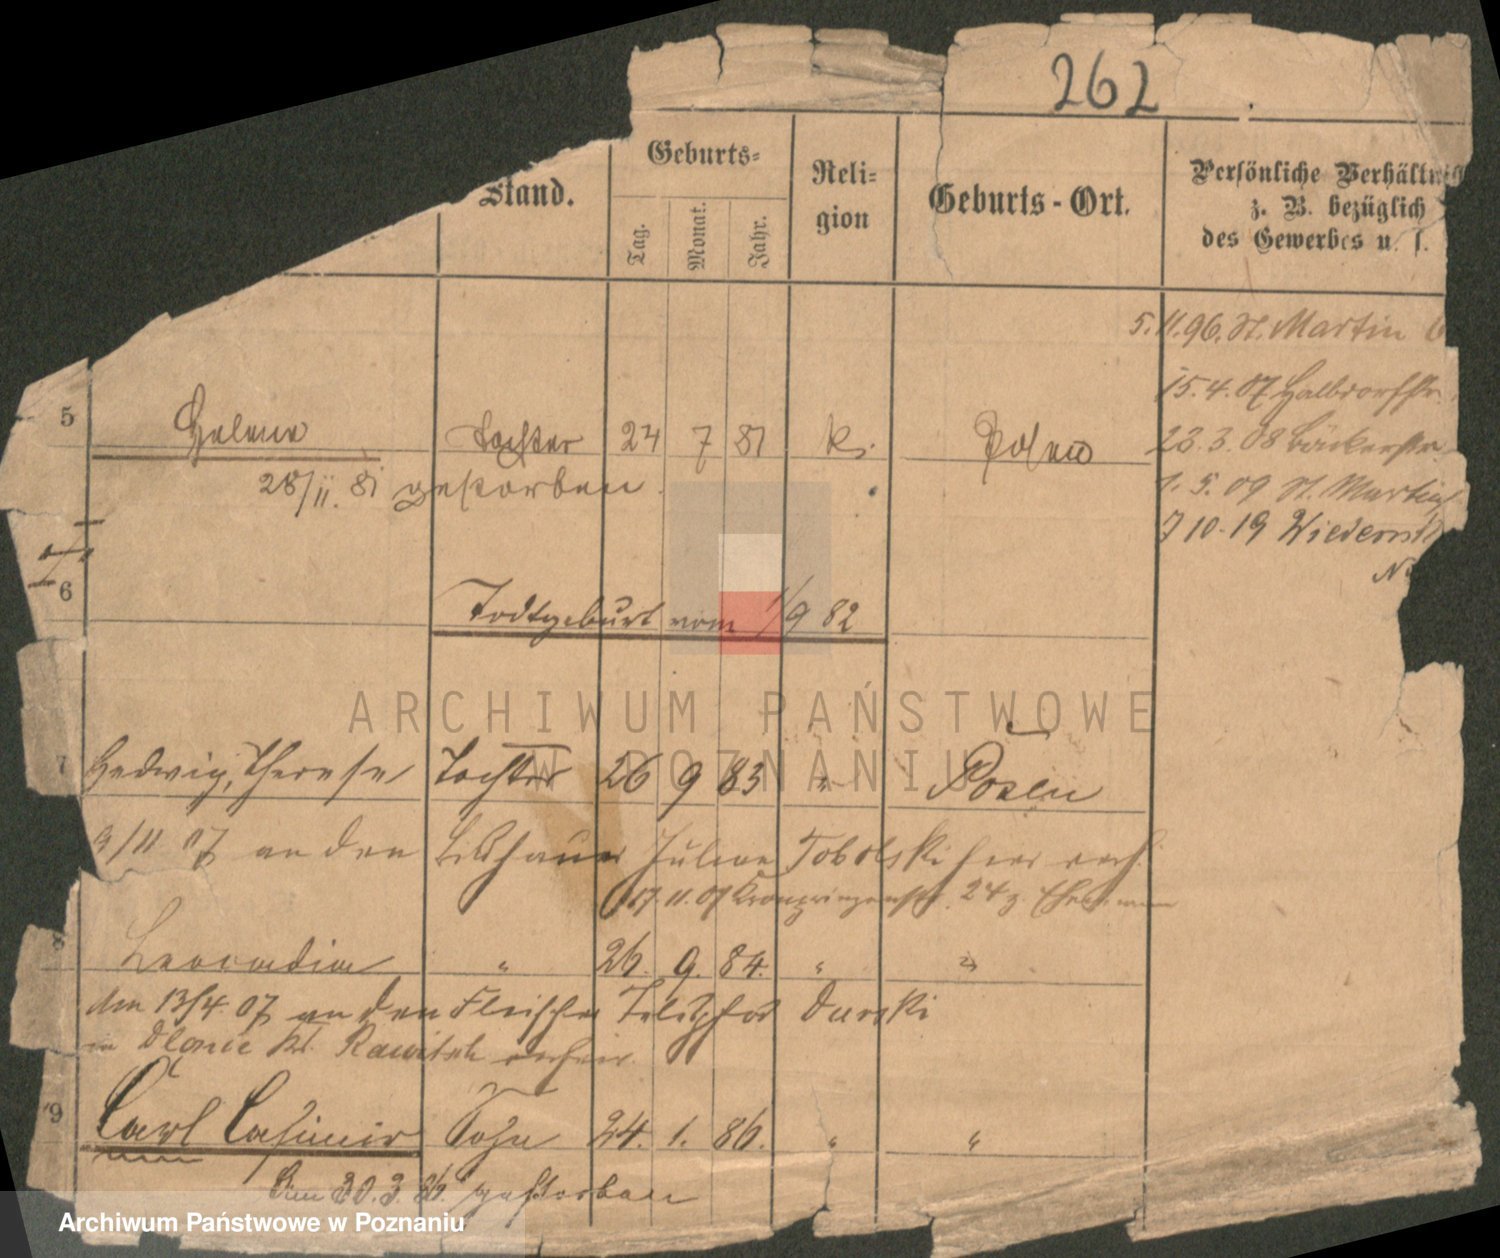 262
Stand.
Geburts-
Tag.
Monat.
Jahr.
Reli-
gion
Geburts-Ort.
Persönliche Verhältn
z. B. bezüglich
des Gewerbes u. s.
5.11.96. St. Martin 6
15.4.07 Halbdorfstr.
5 Helene Tochter 24 7 81 k. Posen
23.3.08 Bäckerstr.
28/11. 81 gestorben
1.5.09 St. Martin
7 10.19 Wiederuf
N
6
Todtgeburt vom 1/9 82
ARCHIWUM PAŃSTWOWE
W POZNANIU
7 Hedwig, Therese Tochter 26 9 83 " Posen
9/11 07 an den Bildhauer Julian Tobolski hier verh.
17.11.07 Kronprinzenstr. 24 z. Ehemann
8 Leocadia " 26. 9. 84. " "
den 13/4. 07 an den Fleischer Telesphor Durski
in Dlonie Kr. Rawitsch verheir.
9 Carl Casimir Sohn 24. 1. 86. " "
Den 30.3. 86. gestorben
Archiwum Państwowe w Poznaniu